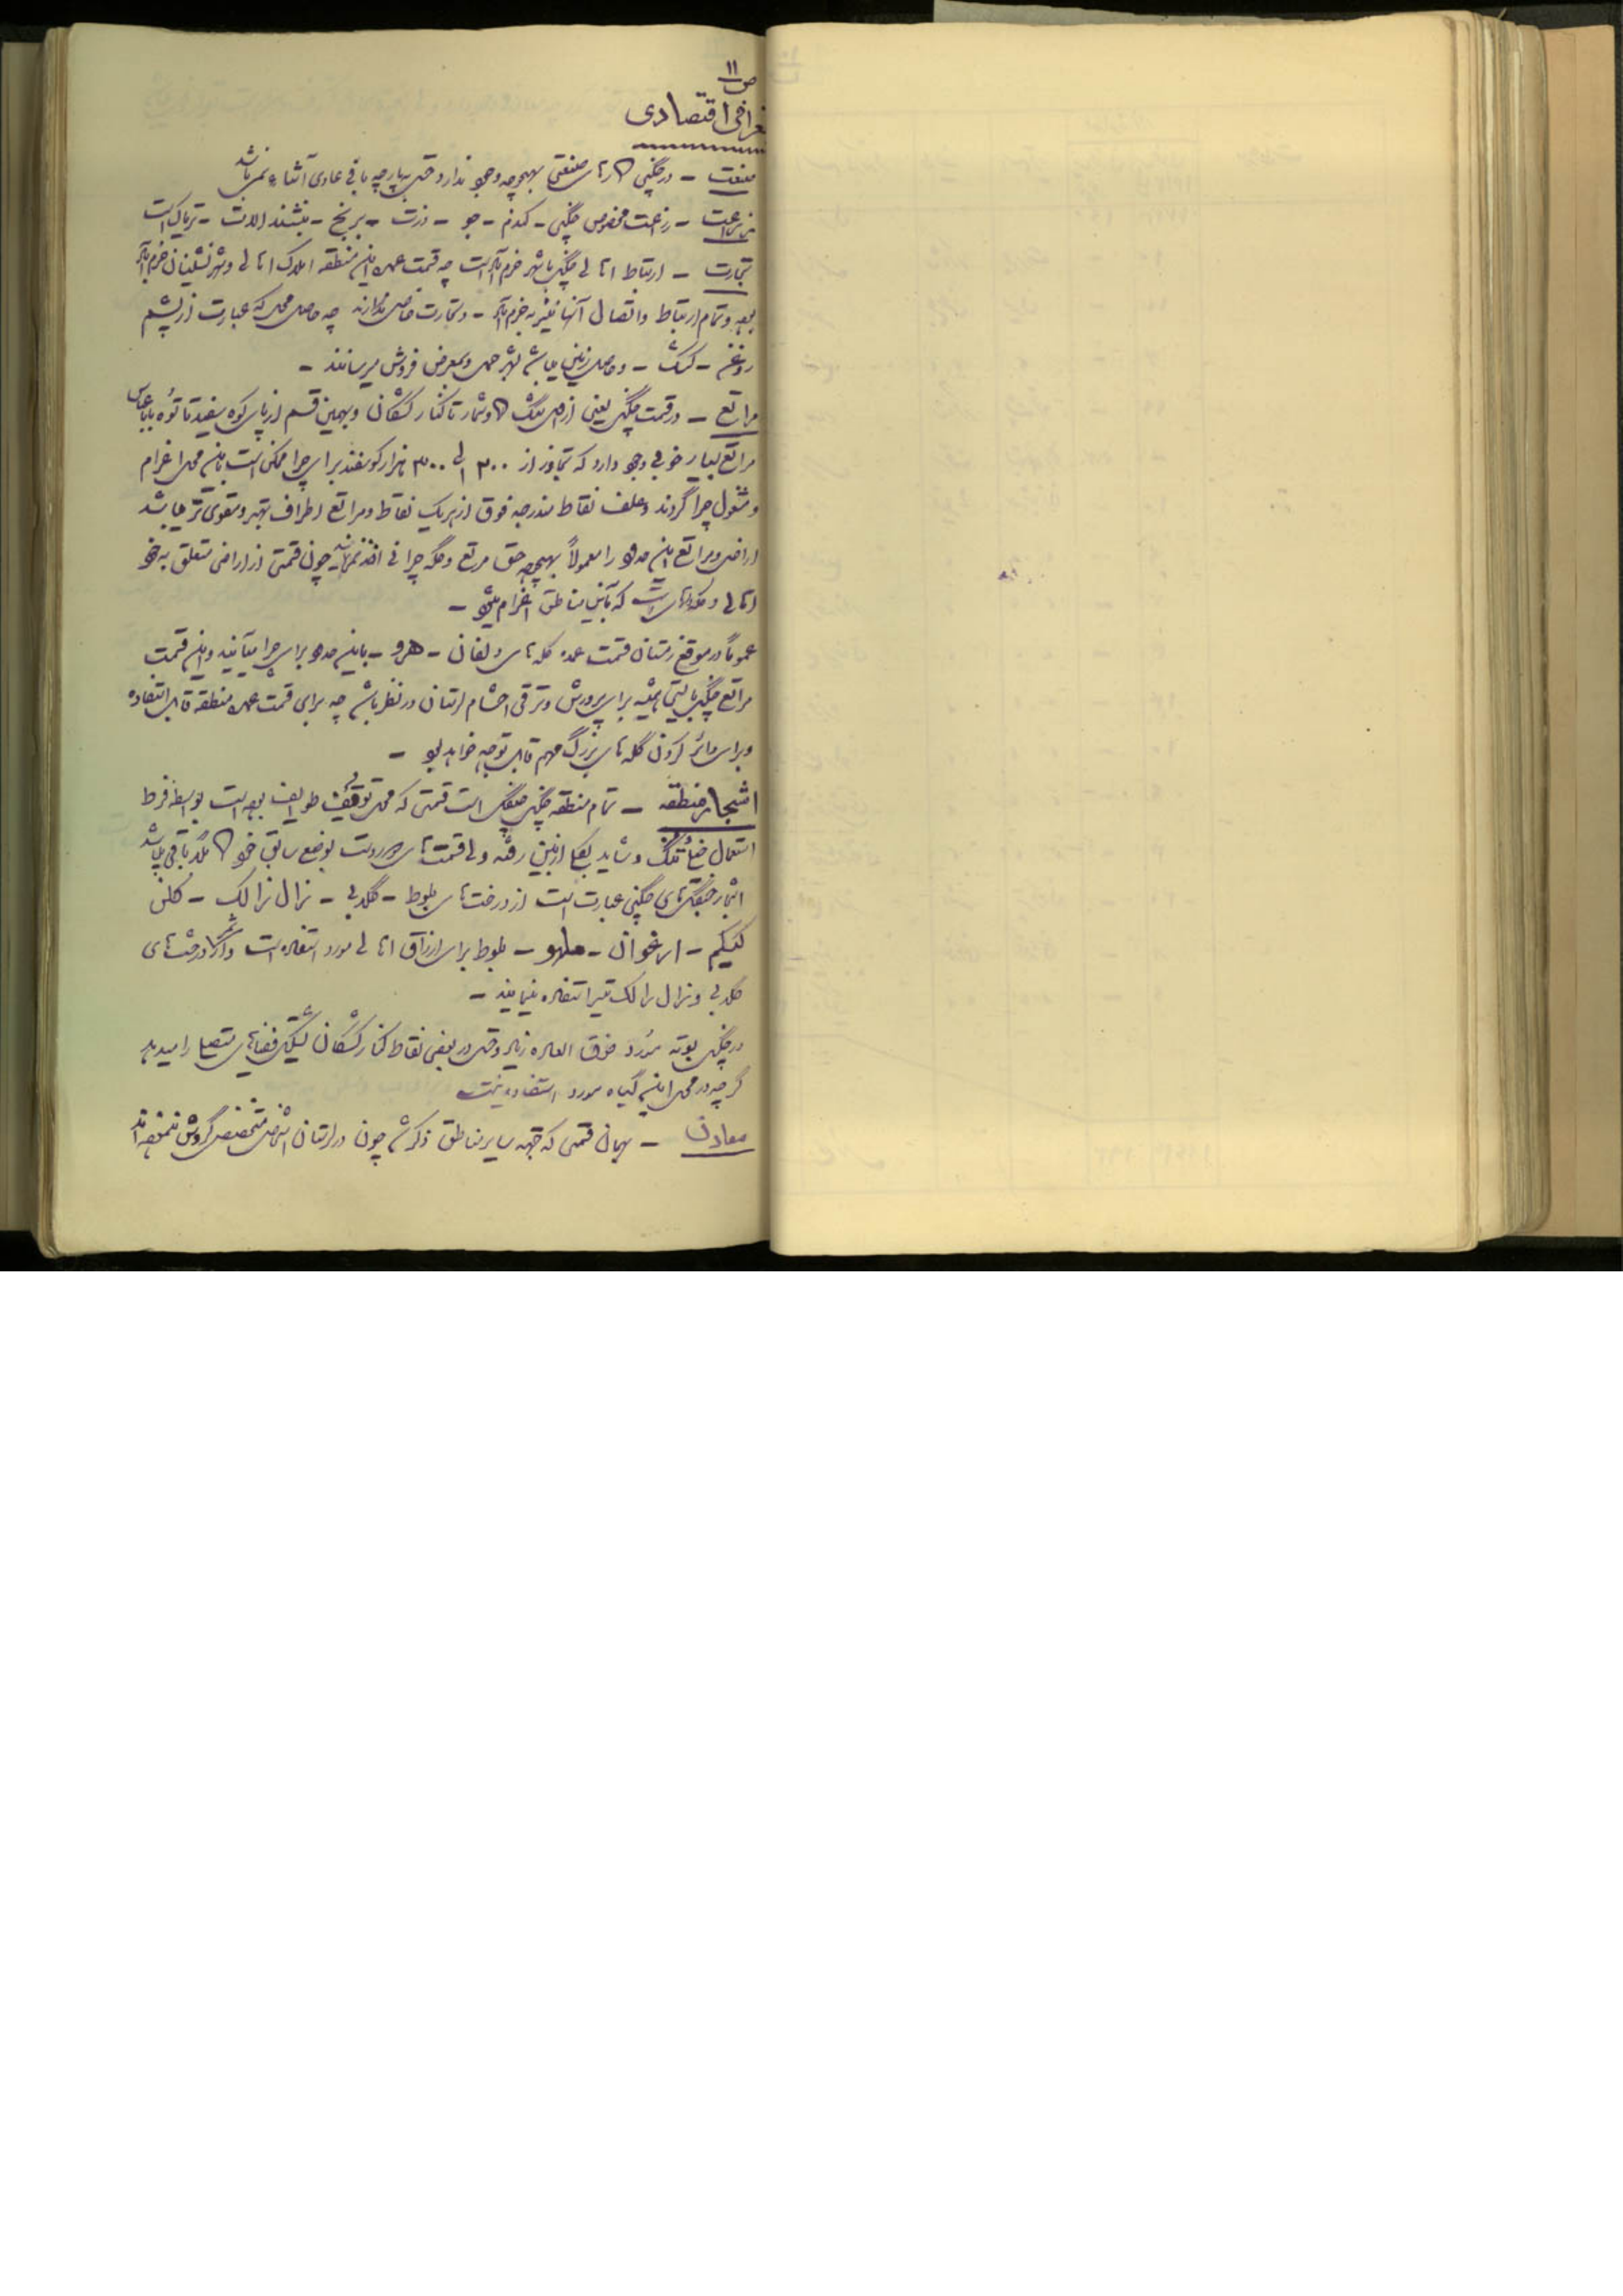 ص ۱۱
جغرافی اقتصادی
صنعت – در چگنی کارهای صنعتی بهیچوجه وجود ندارد حتی بپارچه بافی عادی آشنا نمیباشد
زراعت – زراعت مخصوص چگنی – گندم – جو – ذرت – برنج – تریاک است
تجارت – ارتباط اهالی چگنی با شهر خرم آباد است چه قسمت عمده این منطقه املاک اهالی و شهرنشینان خرم آباد
بوده و تمام ارتباط و اتصال آنها نیز به خرم آباد – و تجارت خاصی ندارند چه حاصل محل که عبارت از پشم
روغن – کشک – و حاصل زمین میباشد بشهر حمل و بمعرض فروش میرسانند –
مراتع – در قسمت چگنی یعنی از تنگ گاوشمار تا کنار کشکان و بهمین قسم از پای کوه سفید تا توه بابا عباس
مراتع بسیار خوبی وجود دارد که تجاوز از ۲۰۰ الی ۳۰۰ هزار گوسفند برای چرا ممکن است باین محل اعزام
و مشغول چرا گردند و علف نقاط مندرجه فوق از هریک نقاط و مراتع اطراف بهتر و مقوی تر میباشد
اراضی و مراتع این حدود را معمولاً بهیچوجه حق مرتع و گله چرانی اخذ نمینمایند چون قسمتی از اراضی متعلق به خود
اهالی و گله هائی است که باین مناطق اعزام میشود –
عموماً در موقع زمستان قسمت عمده گله های دلفان – هرو – باین حدود برای چرا میآیند و این قسمت
مراتع چگنی بایستی همیشه برای پرورش و ترقی احشام لرستان در نظر باشد چه برای قسمت عمده منطقه قابل استفاده
و برای دائر کردن گله های بزرگ مهم قابل توجه خواهد بود –
اشجار منطقه – تمام منطقه چگنی جنگل است قسمتی که محل توقف طوایف بوده است بواسطه فرط
استعمال ذغال جنگل و شاید بکلی از بین رفته ولی قسمت های دوردست بوضع سابق خود کاملاً باقی میباشد
اشجار جنگلهای چگنی عبارت است از درخت های بلوط – گلابی – زال زالک – کلخن
کیکم – ارغوان – ملهو – بلوط برای ارزاق اهالی مورد استفاده است و از ثمر درختهای
گلابی و زال زالک نیز استفاده مینمایند –
در چگنی بوته مورد فوق العاده زیاد و حتی در بعضی نقاط کنار کشکان تشکیل فضاهای متصل را میدهد
گرچه در محل این گیاه مورد استفاده نیست
معادن – بهمان قسمی که جهة سایر مناطق ذکر شد چون در لرستان اشخاص متخصص گردش ننموده اند